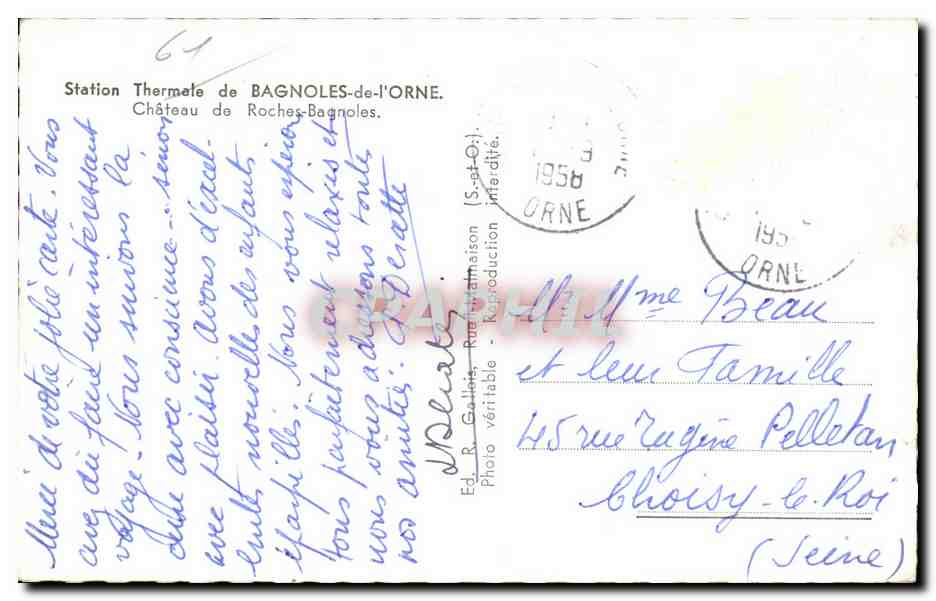 61
Station Thermale de BAGNOLES-de-l'ORNE.
Château de Roches-Bagnoles.
Merci de votre jolie carte. Vous
avez dû faire un intéressant
voyage. Nous suivons la
avec conscience sinon
avec plaisir. Avons d'excel-
lentes nouvelles des enfants
éparpillés. Nous vous espérons
tous parfaitement relaxés et
nous vous adressons toutes
nos amitiés.
Ed. R. Gallois, Rueil-Malmaison (S.-et-O.).
Photo véritable - Reproduction interdite.
1958
ORNE
195
ORNE
CARTOPHIL
Mr Mme Beau
et leur Famille
45 rue Eugène Pelletan
Choisy-le-Roi
(Seine)